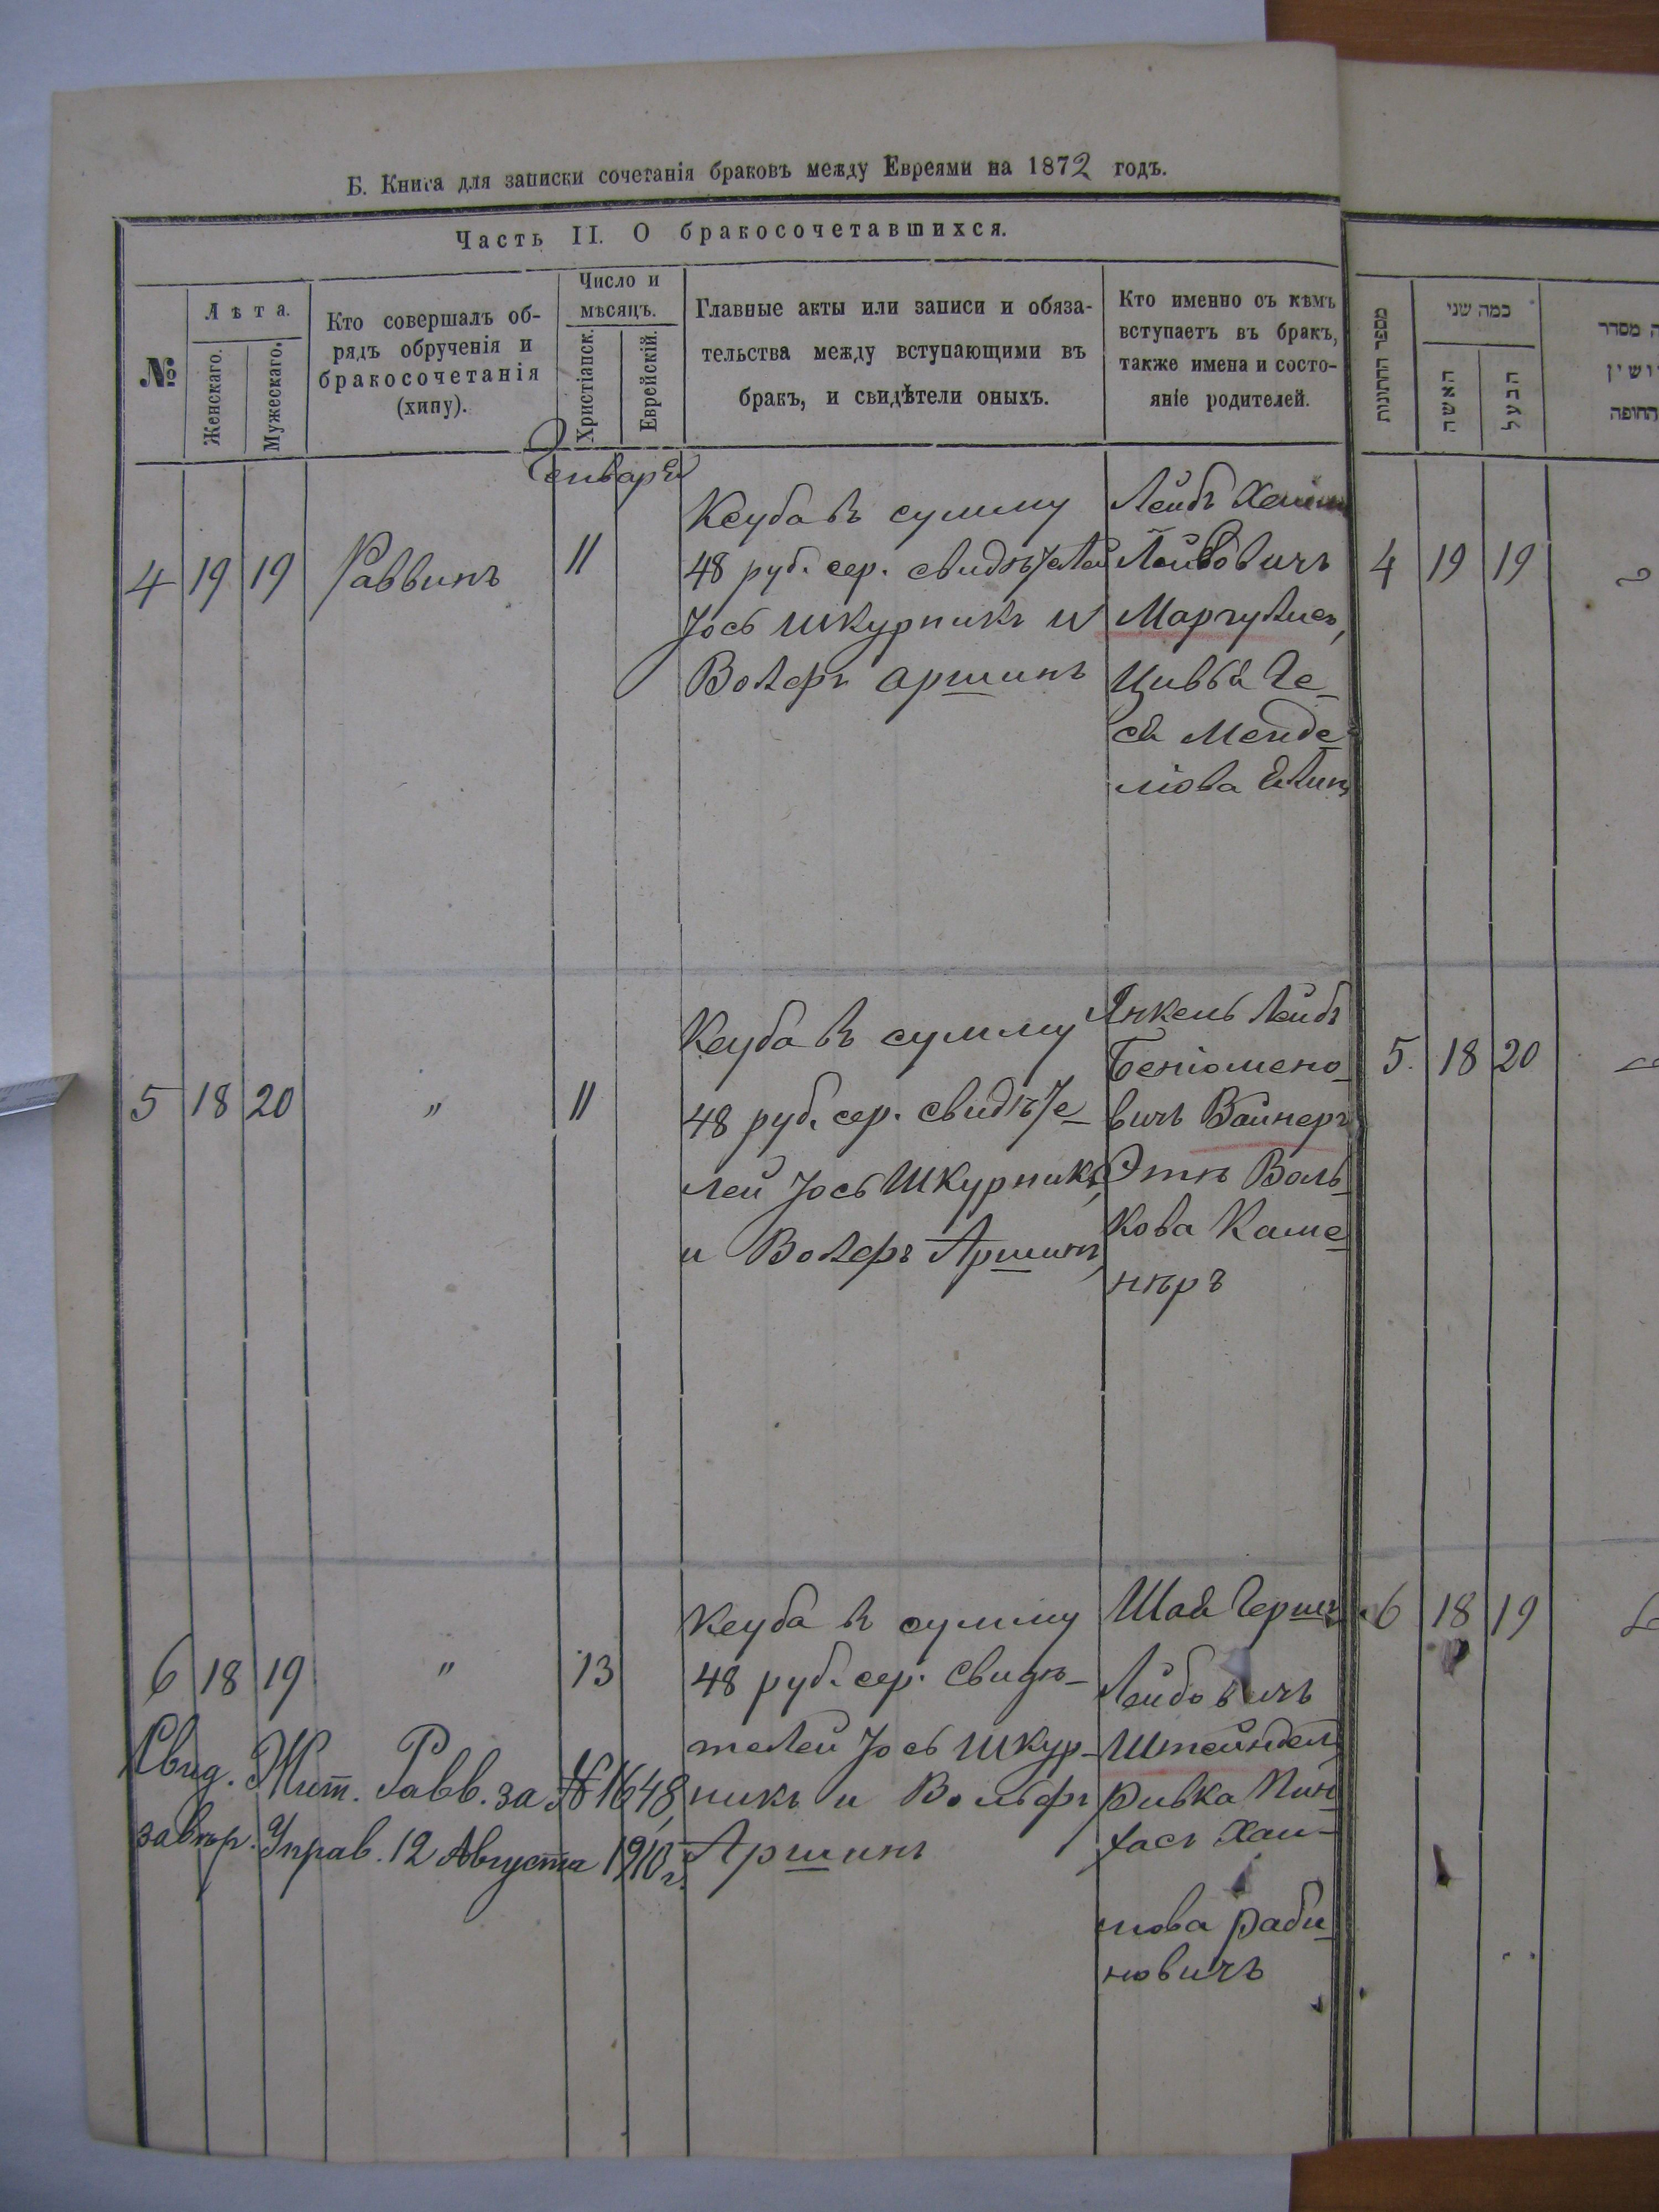 Б. Книга для записки сочетанія браковъ между Евреями на 1872 годъ.
Часть II. О бракосочетавшихся.
№
Лѣта.
Женскаго.
Мужескаго.
Кто совершалъ об-
рядъ обрученія и
бракосочетанія
(хипу).
Число и
мѣсяцъ.
Христіанск.
Еврейскій.
Главные акты или записи и обяза-
тельства между вступающими въ
бракъ, и свидѣтели оныхъ.
Кто именно съ кѣмъ
вступаетъ въ бракъ,
также имена и состо-
яніе родителей.
מספר החתונות
כמה שני
האשה
הבעל
ה מסדר
ושין
החופה
Генваря
4 19 19 Раввинъ 11
Кеуба въ сумму
48 руб. сер. свидѣтелей
Іось Шкурникъ и
Вольфъ Аршинъ
Лейбъ Хаим
Лейбовичъ
Маргулисъ,
Цивья Ге-
ся Менде-
ліова
4 19 19
5 18 20 " 11
Кеуба въ сумму
48 руб. сер. свидѣте-
лей Іось Шкурникъ,
и Вольфъ Аршинъ,
Янкель Лейбъ
Беніомено-
вичъ Вайнеръ
Этя Воль-
кова Каме-
нѣръ
5. 18 20
6 18 19 " 13
Кеуба въ сумму
48 руб. сер. Свидѣ-
телей Іось Шкур-
никъ и Вольфъ
Аршинъ
Шая Гершъ
Лейбовичъ
Штейндель
Ривка Пин-
хасъ Хаи-
мова Раби-
новичъ
6 18 19
Свид. Жит. Равв. за № 1648,
завѣр. Управ. 12 Августа 1910 г.